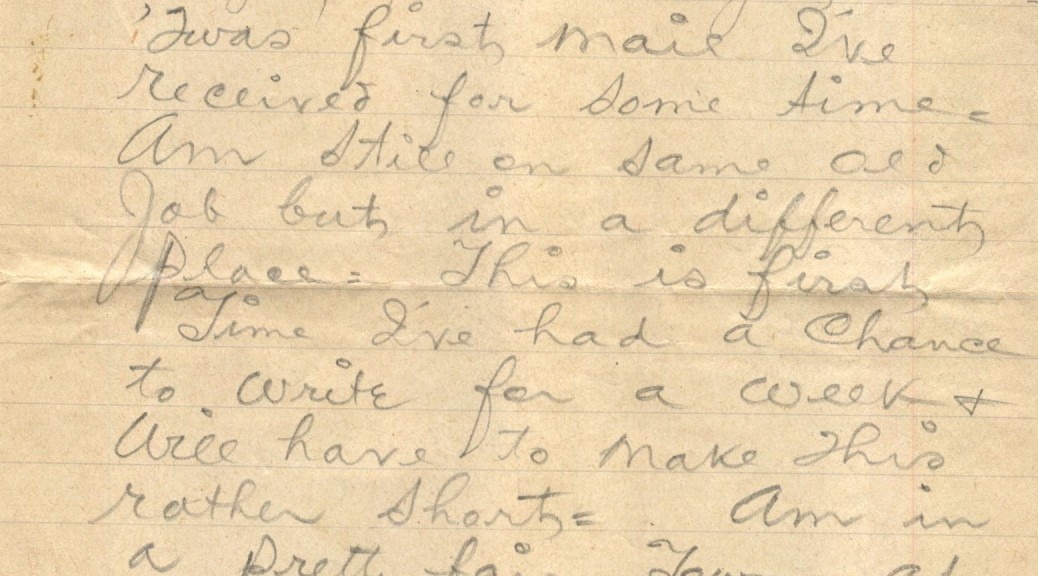 'Twas first mail I've
received for some time =
Am still on same old
Job but in a different
place = This is first
Time I've had a Chance
to write for a week +
Will have to make this
rather short = Am in
a